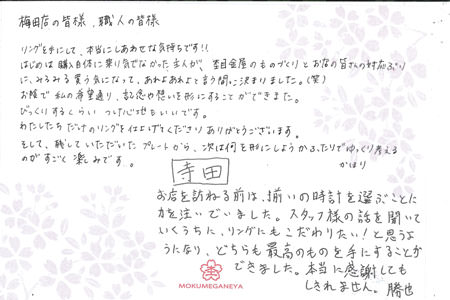 梅田店の皆様、職人の皆様
リングを手にして、本当にしあわせな気持ちです!!
はじめは購入自体に乗り気でなかった主人が、杢目金屋のものづくりとお店の皆さんの対応ぶり
に、みるみる買う気になって、あれよあれよと言う間に決まりました。(笑)
お陰で私の希望通り、記念や想いを形にすることができました。
びっくりするくらい つけ心地もいいです。
わたしたちだけのリングを仕上げてくださり ありがとうございます。
そして、残していただいたプレートから、次は何を形にしようか ふたりでゆっくり考える
のがすごく楽しみです。 かほり
寺田
お店を訪ねる前は、揃いの時計を選ぶことに
力を注いでいました。スタッフ様の話を聞いて
いくうちに、リングにもこだわりたい!と思うよ
うになり、どちらも最高のものを手にすることが
できました。本当に感謝しても
しきれません。 勝也
MOKUMEGANEYA